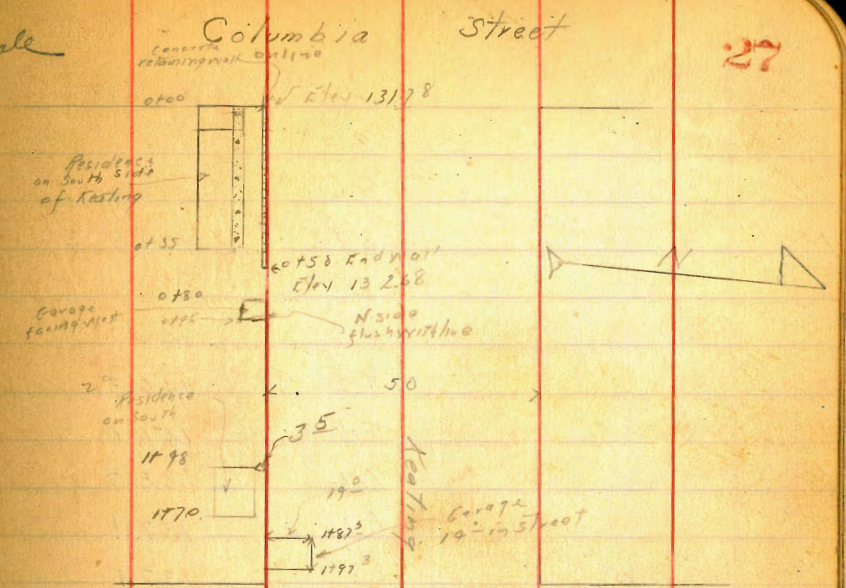 Columbia Street
27
Concrete
retaining wall on line
0+00
Elev 131.78
Residence
on South Side
of Keating
0+35
0+58 End wall
Elev 132.68
0+80
Garage
facing west
0+95
N. side
flush with line
50
Residence
on South
35
1+98
1+70
19⁰
Keating
Garage
19⁰ in street
1+87³
1+97³
N